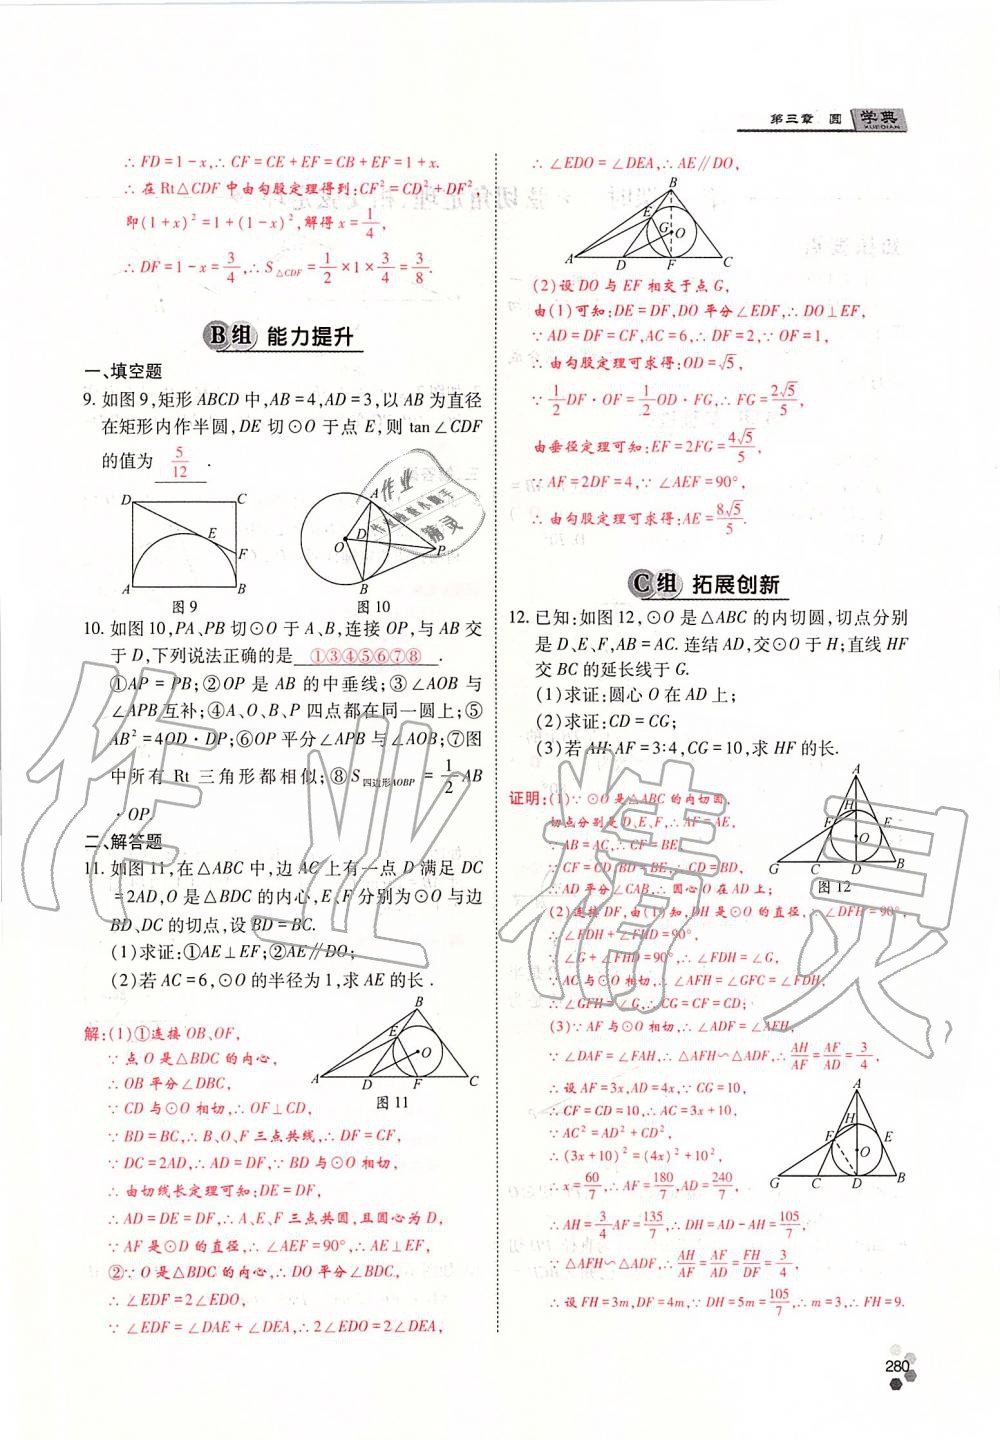 第三章 圆 学典
XUEDIAN
∴FD=1-x,∴CF=CE+EF=CB+EF=1+x.
∴在Rt△CDF中由勾股定理得到:CF²=CD²+DF²,
即(1+x)²=1+(1-x)²,解得x=1/4,
∴DF=1-x=3/4,∴S△CDF=1/2×1×3/4=3/8.
B组 能力提升
一、填空题
9. 如图9,矩形ABCD中,AB=4,AD=3,以AB为直径
在矩形内作半圆,DE切⊙O于点E,则tan∠CDF
的值为 5/12 .
D C E F A B
图9
A O D P B
图10
10. 如图10,PA、PB切⊙O于A、B,连接OP,与AB交
于D,下列说法正确的是 ①③④⑤⑥⑦⑧ .
①AP=PB;②OP是AB的中垂线;③∠AOB与
∠APB互补;④A、O、B、P四点都在同一圆上;⑤
AB²=4OD·DP;⑥OP平分∠APB与∠AOB;⑦图
中所有Rt三角形都相似;⑧S四边形AOBP=1/2AB
·OP
二、解答题
11. 如图11,在△ABC中,边AC上有一点D满足DC
=2AD,O是△BDC的内心,E、F分别为⊙O与边
BD、DC的切点,设BD=BC.
(1)求证:①AE⊥EF;②AE∥DO;
(2)若AC=6,⊙O的半径为1,求AE的长.
B E O A D F C
图11
解:(1)①连接OB、OF,
∵点O是△BDC的内心,
∴OB平分∠DBC,
∵CD与⊙O相切,∴OF⊥CD,
∵BD=BC,∴B、O、F三点共线,∴DF=CF,
∵DC=2AD,∴AD=DF,∵BD与⊙O相切,
∴由切线长定理可知:DE=DF,
∴AD=DE=DF,∴A、E、F三点共圆,且圆心为D,
∵AF是⊙D的直径,∴∠AEF=90°,∴AE⊥EF,
②∵O是△BDC的内心,∴DO平分∠BDC,
∴∠EDF=2∠EDO,
∵∠EDF=∠DAE+∠DEA,∴2∠EDO=2∠DEA,
∴∠EDO=∠DEA,∴AE∥DO,
B E G O A D F C
(2)设DO与EF相交于点G,
由(1)可知:DE=DF,DO平分∠EDF,∴DO⊥EF,
∵AD=DF=CF,AC=6,∴DF=2,∵OF=1,
∴由勾股定理可求得:OD=√5,
∵1/2DF·OF=1/2OD·FG,∴FG=2√5/5,
由垂径定理可知:EF=2FG=4√5/5,
∵AF=2DF=4,∵∠AEF=90°,
∴由勾股定理可求得:AE=8√5/5.
C组 拓展创新
12. 已知:如图12,⊙O是△ABC的内切圆,切点分别
是D、E、F,AB=AC.连结AD,交⊙O于H;直线HF
交BC的延长线于G.
(1)求证:圆心O在AD上;
(2)求证:CD=CG;
(3)若AH:AF=3:4,CG=10,求HF的长.
A H F E O G C D B
图12
证明:(1)∵⊙O是△ABC的内切圆,
切点分别是D、E、F,∴AF=AE,
∵AB=AC,∴CF=BE,
∵CF=CD,BD=BE,∴CD=BD,
∴AD平分∠CAB,∴圆心O在AD上;
(2)连接DF,由(1)知,DH是⊙O的直径,∴∠DFH=90°,
∴∠FDH+∠FHD=90°,
∵∠G+∠FHD=90°,∴∠FDH=∠G,
∵AC与⊙O相切,∴∠AFH=∠GFC=∠FDH,
∴∠GFH=∠G,∴CG=CF=CD;
(3)∵AF与⊙O相切,∴∠ADF=∠AFH,
∵∠DAF=∠FAH,∴△AFH∽△ADF,∴AH/AF=AF/AD=3/4,
∴设AF=3x,AD=4x,∵CG=10,
∴CF=CD=10,∴AC=3x+10,
∵AC²=AD²+CD²,
∴(3x+10)²=(4x)²+10²,
∴x=60/7,∴AF=180/7,AD=240/7,
∴AH=3/4AF=135/7,∴DH=AD-AH=105/7,
∵△AFH∽△ADF,∴AH/AF=AF/AD=FH/DF=3/4,
∴设FH=3m,DF=4m,∵DH=5m=105/7,∴m=3,∴FH=9.
A H F E O G C D B
280
作业精灵